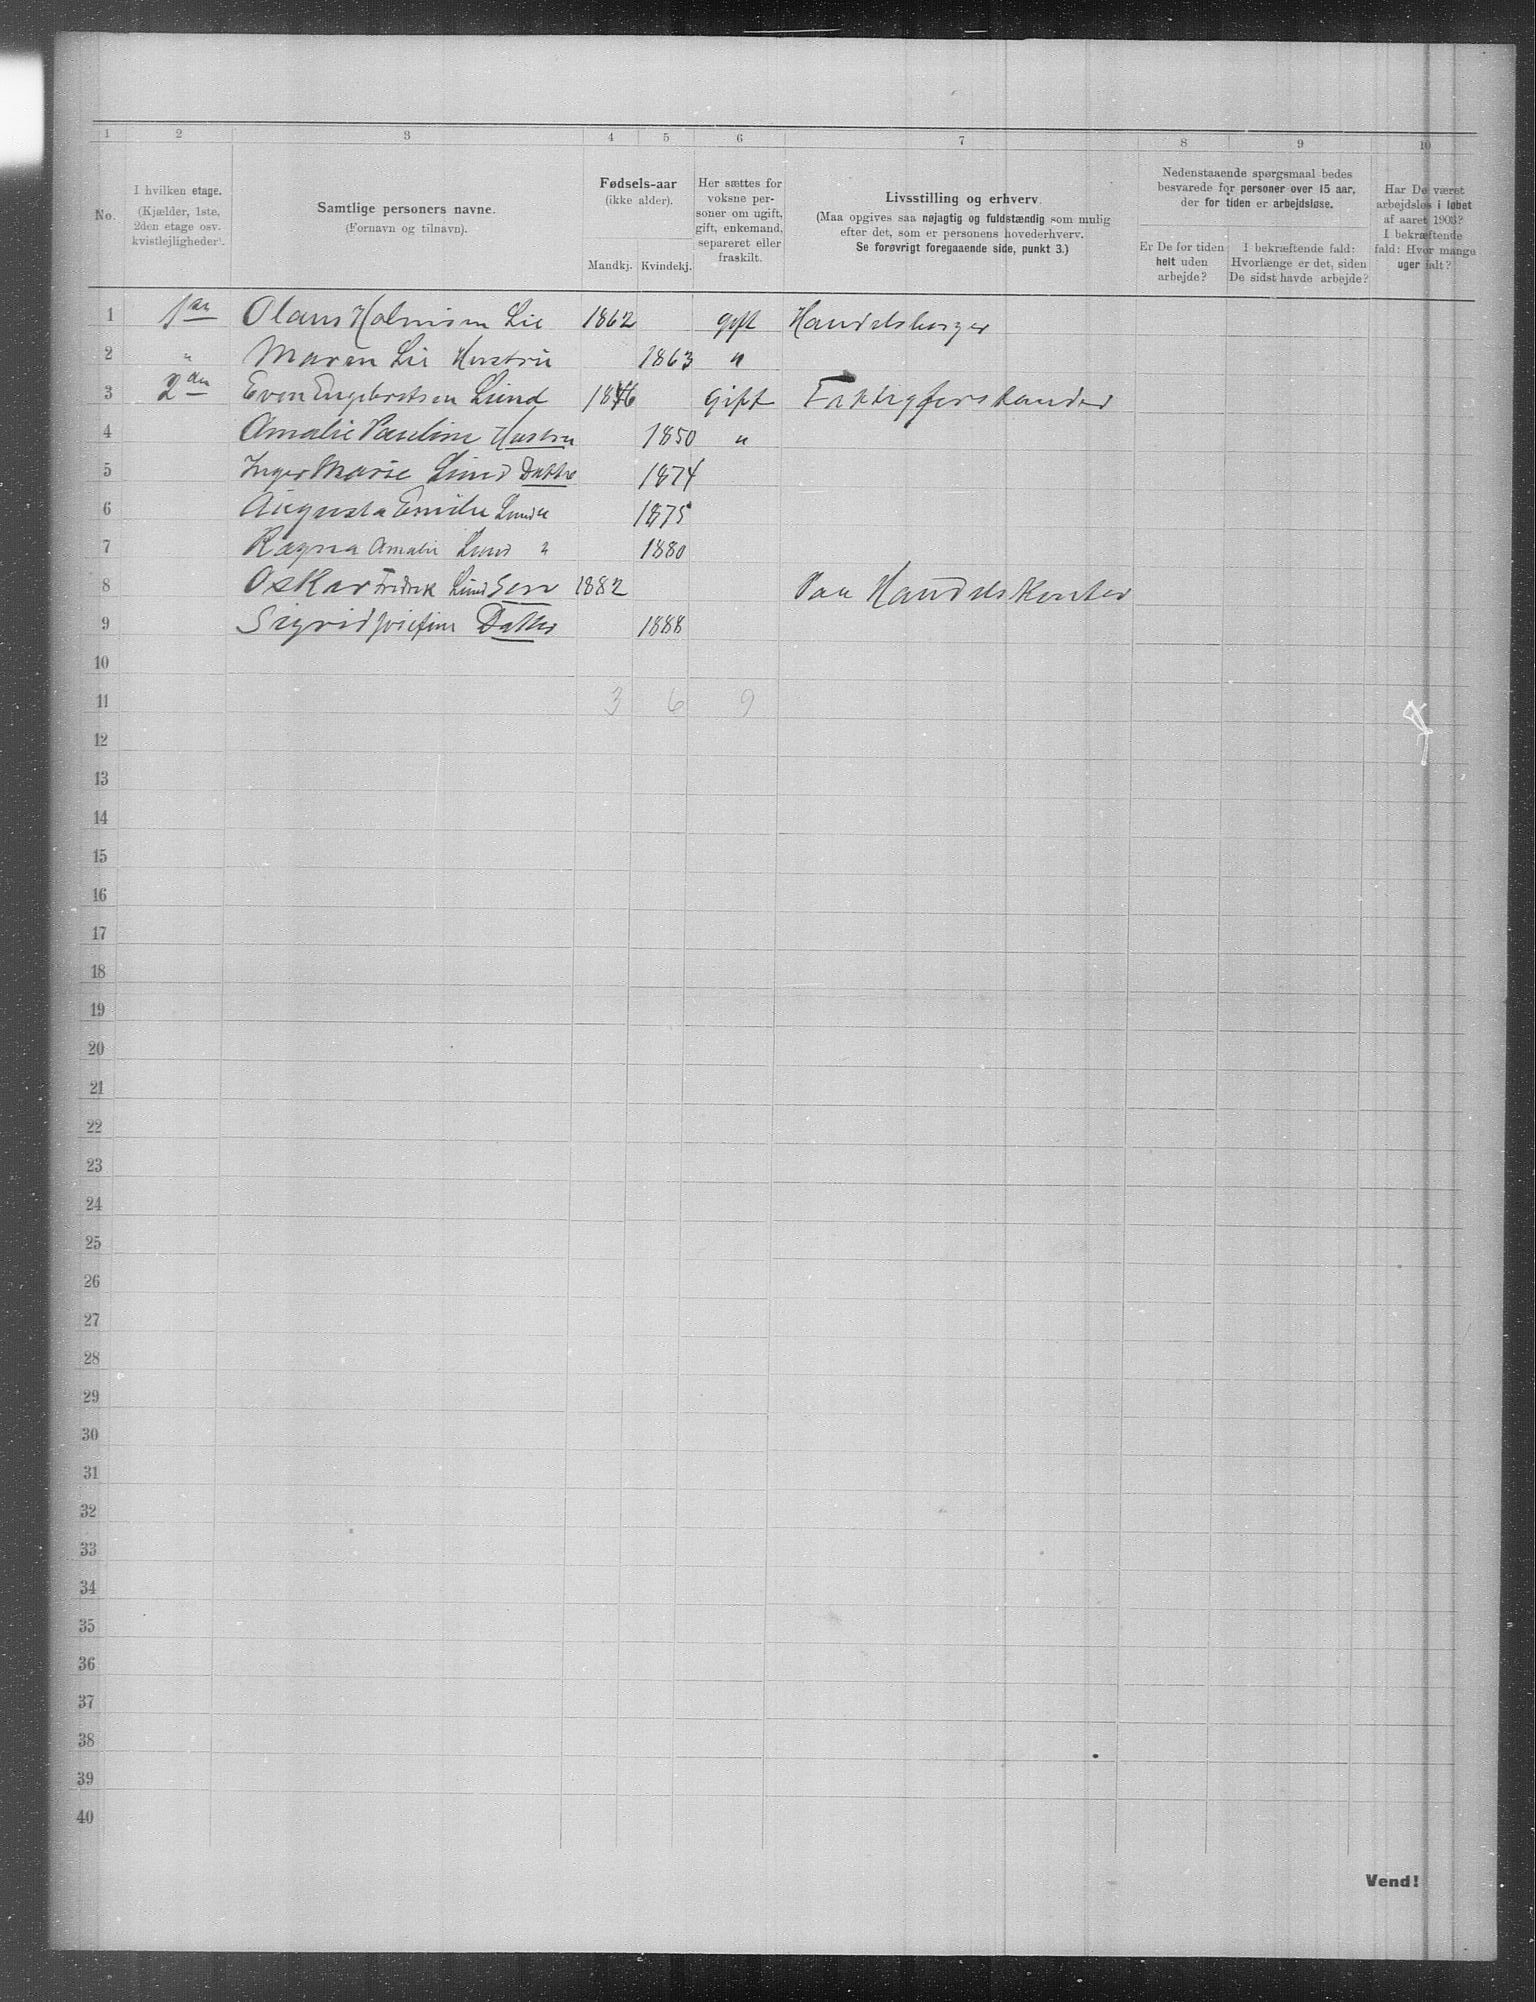 1 2 3 4 5 6 7 8 9 10
No.
I hvilken etage.
(Kjælder, 1ste,
2den etage osv.
kvistlejligheder).
Samtlige personers navne.
(Fornavn og tilnavn).
Fødsels-aar
(ikke alder).
Mandkj. Kvindekj.
Her sættes for
voksne per-
soner om ugift,
gift, enkemand,
separeret eller
fraskilt.
Livsstilling og erhverv.
(Maa opgives saa nøjagtig og fuldstændig som mulig
efter det, som er personens hovederhverv.
Se forøvrigt foregaaende side, punkt 3.)
Nedenstaaende spørgsmaal bedes
besvarede for personer over 15 aar,
der for tiden er arbejdsløse.
Er De for tiden
helt uden
arbejde?
I bekræftende fald:
Hvorlænge er det, siden
De sidst havde arbejde?
Har De været
arbejdsløs i løbet
af aaret 1903?
I bekræftende
fald: Hvor mange
uger ialt?
1 Olaus Lie 1862 gift Handelsborger
2 " Maren Lie Hustru 1863 "
3 2den Even Engebretsen Lund 1846 Gift
4 Amalie Pauline Hustru 1850 "
5 Inger Marie Lund Datter 1874
6 Augusta Emilie Lund " 1875
7 Ragna Amalie Lund " 1880
8 Oskar Fredrik Lund Sen 1882 Paa Handelskontor
9 Sigrid Josefine Datter 1888
10
11 3 6 9
12
13
14
15
16
17
18
19
20
21
22
23
24
25
26
27
28
29
30
31
32
33
34
35
36
37
38
39
40
Vend!